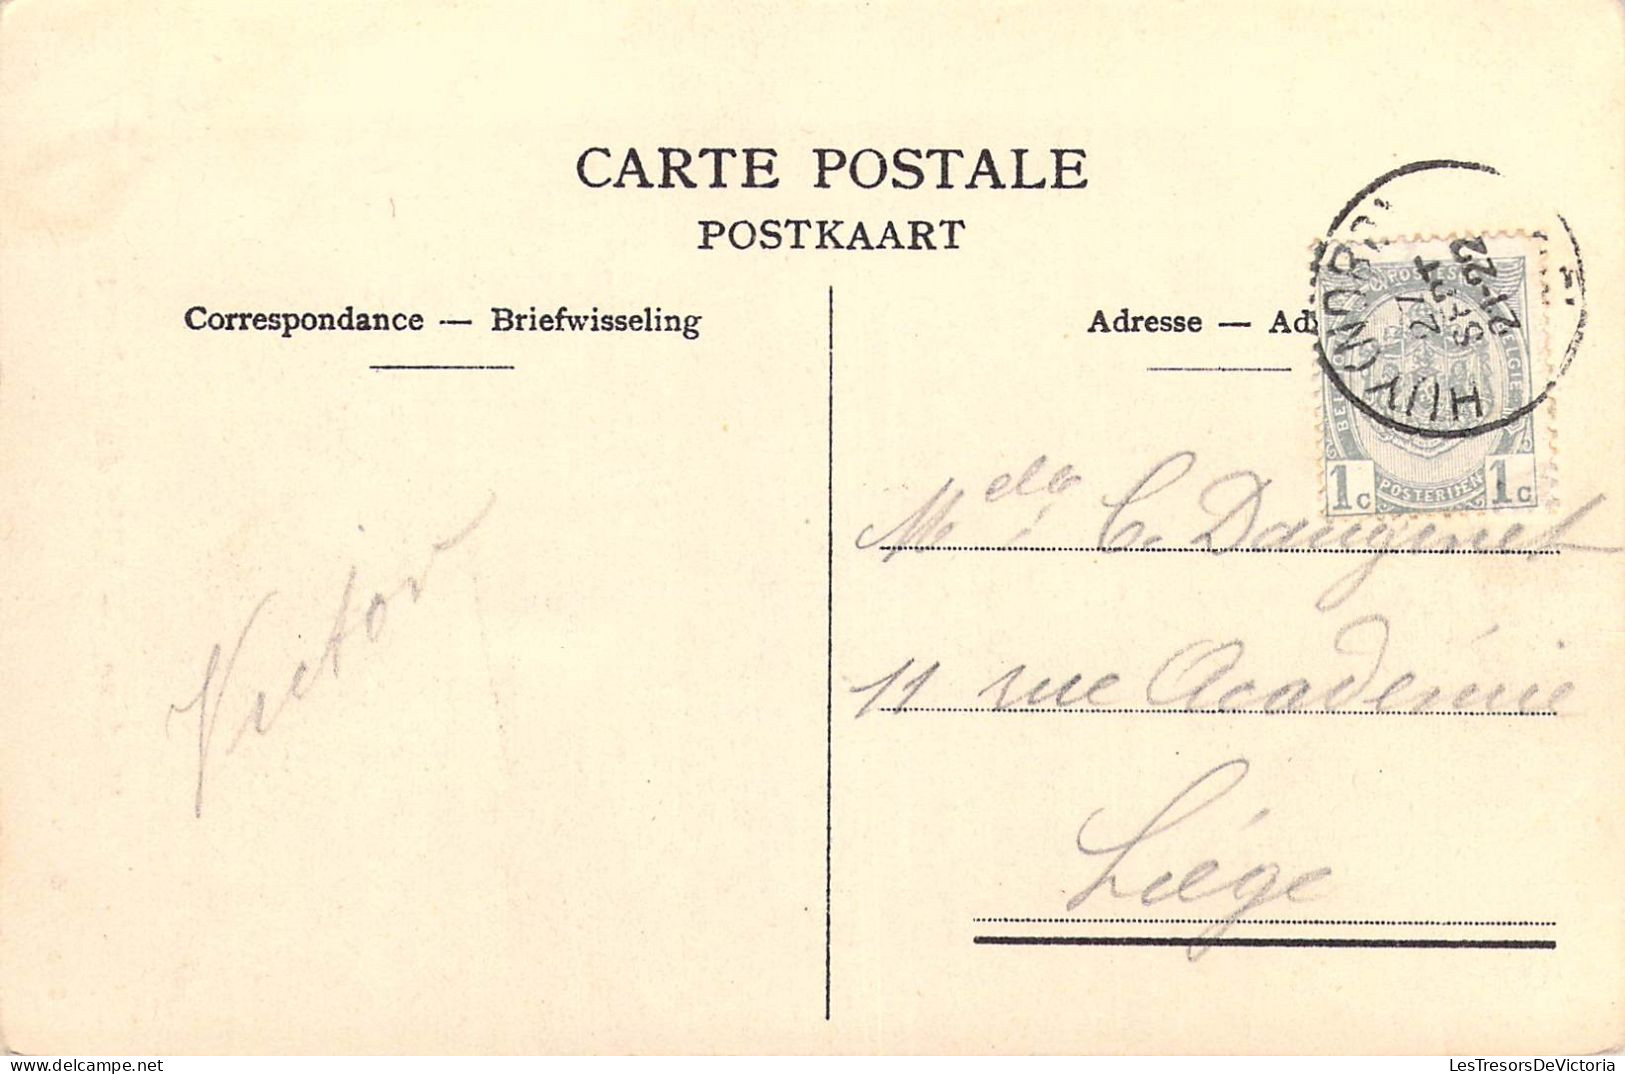 CARTE POSTALE
POSTKAART
Correspondance — Briefwisseling
Adresse — Ad
HUY (NORD)
27
SEPT
21-22
POSTES
BELGIE
1c
POSTERIJEN
1c
Victor
Melle C. Dauginet
11 rue Académie
Liége
LesTresorsDeVictoria